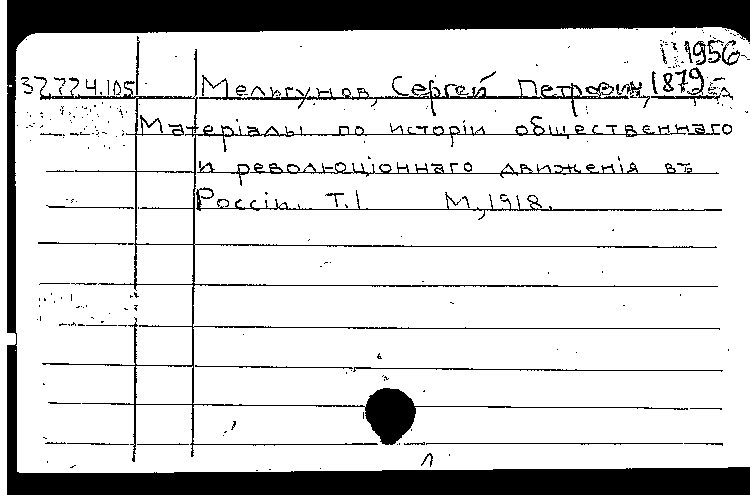 1956
32724.105 Мельгунов, Сергей Петрович, 1879
Матерiалы по исторiи общественнаго
и революцiоннаго движенiя въ
Россiи. Т.I М., 1918.